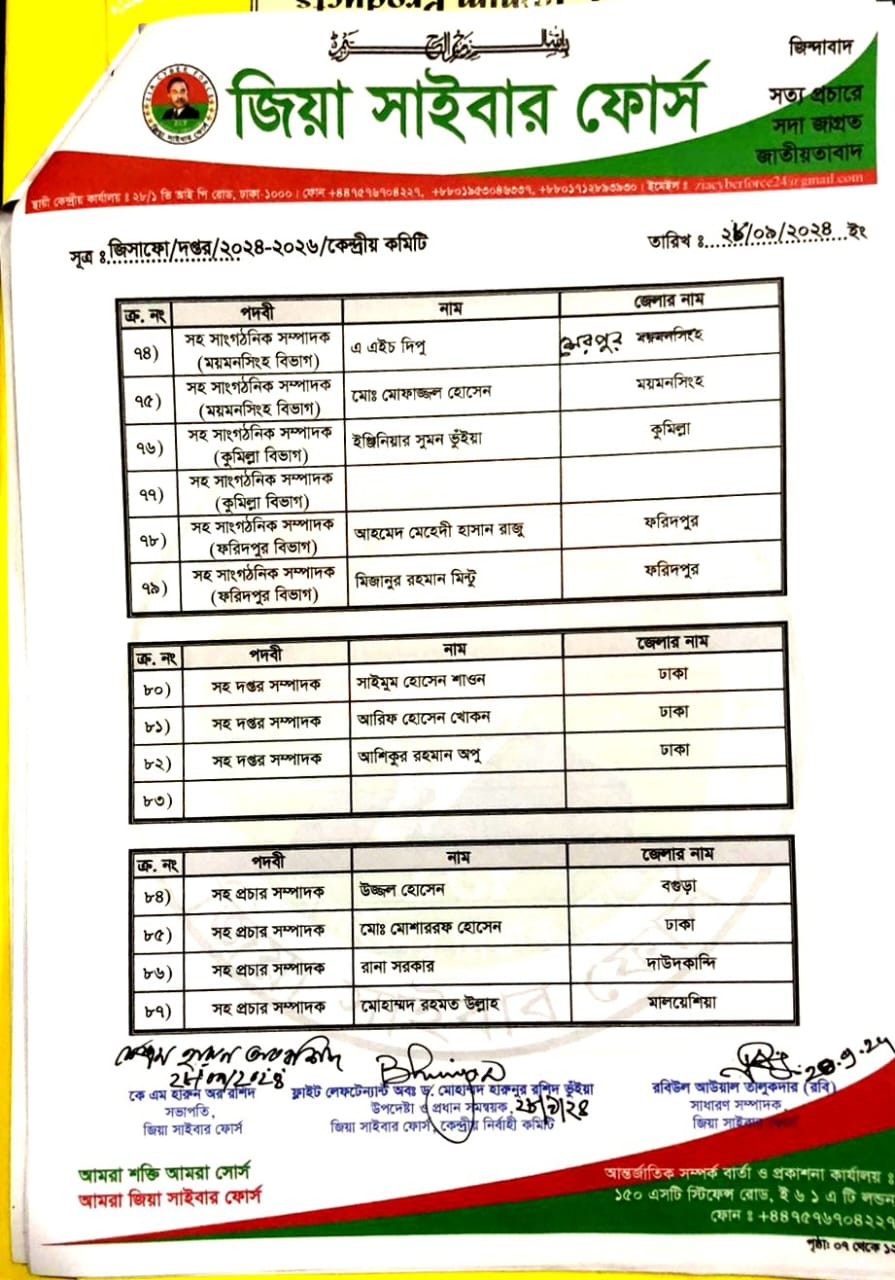 জিন্দাবাদ
জিয়া সাইবার ফোর্স
সত্য প্রচারে
সদা জাগ্রত
জাতীয়তাবাদ
ZIA CYBER FORCE
জিয়া সাইবার ফোর্স
স্থায়ী কেন্দ্রীয় কার্যালয় ঃ ২৮/১ ভি আই পি রোড, ঢাকা-১০০০। ফোন +৪৪৭৫৭৬৭০৪২২৭, +৮৮০১৯৫৩০৪৬৩৩৭, +৮৮০১৭১২৮৯৩৯৩০। ইমেইল ঃ ziacyberforce24@gmail.com
সূত্র ঃ জিসাফো/দপ্তর/২০২৪-২০২৬/কেন্দ্রীয় কমিটি
তারিখ ঃ ২৮/০৯/২০২৪ ইং
ক্র. নং পদবী নাম জেলার নাম
৭৪) সহ সাংগঠনিক সম্পাদক (ময়মনসিংহ বিভাগ) এ এইচ দিপু শেরপুর ময়মনসিংহ
৭৫) সহ সাংগঠনিক সম্পাদক (ময়মনসিংহ বিভাগ) মোঃ মোফাজ্জল হোসেন ময়মনসিংহ
৭৬) সহ সাংগঠনিক সম্পাদক (কুমিল্লা বিভাগ) ইঞ্জিনিয়ার সুমন ভুঁইয়া কুমিল্লা
৭৭) সহ সাংগঠনিক সম্পাদক (কুমিল্লা বিভাগ)
৭৮) সহ সাংগঠনিক সম্পাদক (ফরিদপুর বিভাগ) আহমেদ মেহেদী হাসান রাজু ফরিদপুর
৭৯) সহ সাংগঠনিক সম্পাদক (ফরিদপুর বিভাগ) মিজানুর রহমান মিন্টু ফরিদপুর
ক্র. নং পদবী নাম জেলার নাম
৮০) সহ দপ্তর সম্পাদক সাইমুম হোসেন শাওন ঢাকা
৮১) সহ দপ্তর সম্পাদক আরিফ হোসেন খোকন ঢাকা
৮২) সহ দপ্তর সম্পাদক আশিকুর রহমান অপু ঢাকা
৮৩)
ক্র. নং পদবী নাম জেলার নাম
৮৪) সহ প্রচার সম্পাদক উজ্জল হোসেন বগুড়া
৮৫) সহ প্রচার সম্পাদক মোঃ মোশাররফ হোসেন ঢাকা
৮৬) সহ প্রচার সম্পাদক রানা সরকার দাউদকান্দি
৮৭) সহ প্রচার সম্পাদক মোহাম্মদ রহমত উল্লাহ মালয়েশিয়া
২৮/০৯/২০২৪
কে এম হারুন অর রশিদ
সভাপতি,
জিয়া সাইবার ফোর্স
ফ্লাইট লেফটেন্যান্ট অবঃ ড. মোহাম্মদ হারুনুর রশিদ ভুঁইয়া
উপদেষ্টা ও প্রধান সমন্বয়ক, ২৮/৯/২৪
জিয়া সাইবার ফোর্স, কেন্দ্রীয় নির্বাহী কমিটি
২৮.৯.২৪
রবিউল আউয়াল তালুকদার (রবি)
সাধারণ সম্পাদক,
জিয়া সাইবার ফোর্স
আমরা শক্তি আমরা সোর্স
আমরা জিয়া সাইবার ফোর্স
আন্তর্জাতিক সম্পর্ক বার্তা ও প্রকাশনা কার্যালয় ঃ
১৫০ এসটি স্টিফেন্স রোড, ই ৬ ১ এ টি লন্ডন
ফোন ঃ +৪৪৭৫৭৬৭০৪২২৭
পৃষ্ঠা: ০৭ থেকে ১২